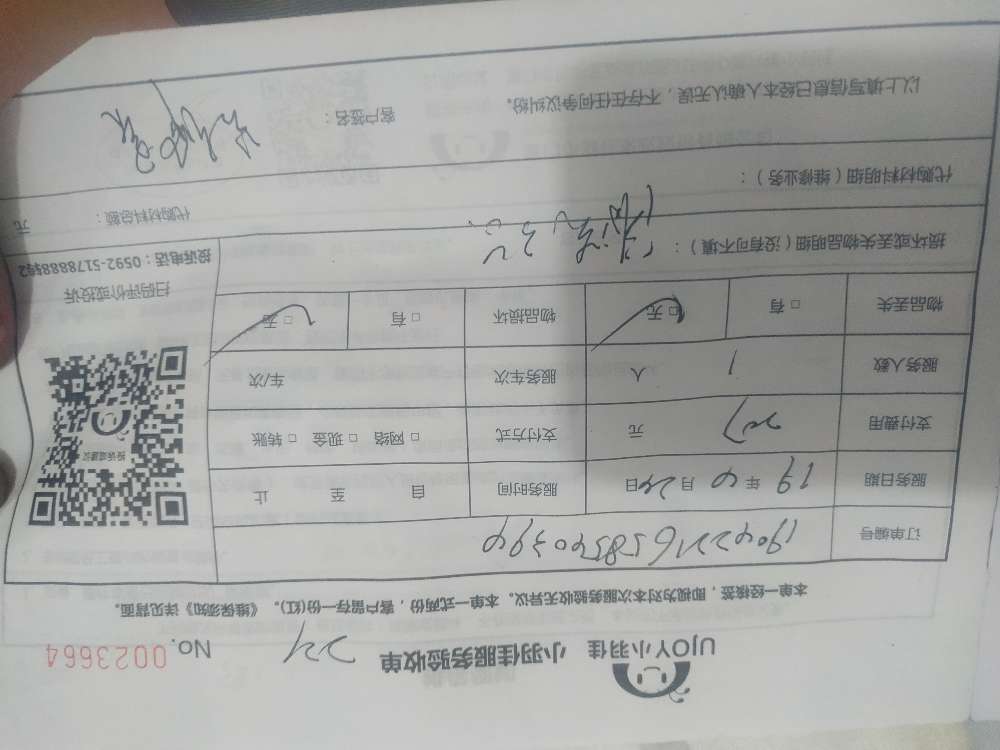 UJOY小羽佳 小羽佳服务验收单 No. 0023664
本单一经核签，即视为对本次服务验收无异议。本单一式两份，客户留存一份(红)。《维保须知》详见背面。
订单编号
服务日期 19年4月24日 服务时间 自 至 止
支付费用 元 支付方式 □网络 □现金 □转账
服务人数 1 人 服务车次 车/次
物品丢失 □有 □无 物品损坏 □有 □无
投诉或建议
扫码评价或投诉
投诉电话：0592-5178888转2
损坏或丢失物品明细（没有可不填）：
代购材料明细（维修业务）：
代购材料总额： 元
以上填写信息已经本人确认无误，不存在任何争议纠纷。
客户签名：